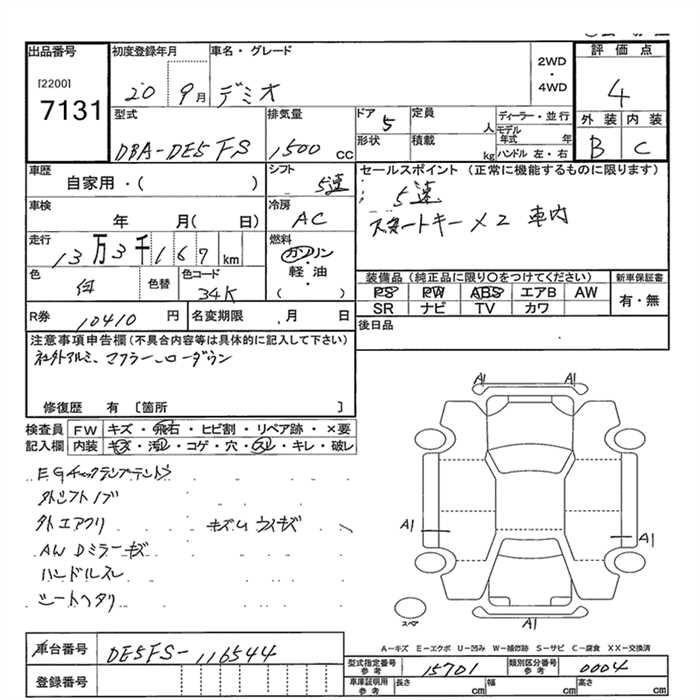 出品番号 初度登録年月 車名・グレード 評価点
[2200]
7131
20 9月 デミオ
2WD
・
4WD
4
型式 排気量 ドア 定員 ディーラー・並行 外装 内装
DBA-DE5FS 1500 cc 5 人 モデル年式 年
形状 積載 kg ハンドル 左・右 B C
車歴 シフト セールスポイント (正常に機能するものに限ります)
自家用・( ) 5速
5速
車検 冷房
年 月( 日) AC
スマートキー×2 車内
走行 燃料
13万3千167km ガソリン・軽油・( )
色 色替 色コード
白 34K
装備品 (純正品に限り○をつけてください) 新車保証書
PS PW ABS エアB AW 有・無
SR ナビ TV カワ
R券 10410 円 名変期限 . 月 日
後日品
注意事項申告欄(不具合内容等は具体的に記入して下さい)
社外アルミ、マフラー、ローダウン
修復歴 有 [箇所 ]
検査員 FW キズ・飛石・ヒビ割・リペア跡・×要
記入欄 内装 キズ・汚レ・コゲ・穴・スレ・キレ・破レ
EGチェックランプテントウ
外シフトノブ
外エアクリ キズUウスキズ
AW Dミラーキズ
ハンドルスレ
シートヘタリ
A1 A1
A1 A1
A1
スペア
A-キズ E-エクボ U-凹み W-補修跡 S-サビ C-腐食 XX-交換済
車台番号 DE5FS-116544
登録番号
型式指定番号 参考 15701 類別区分番号 参考 0004
車庫証明用 参考 長さ cm 幅 cm 高さ cm